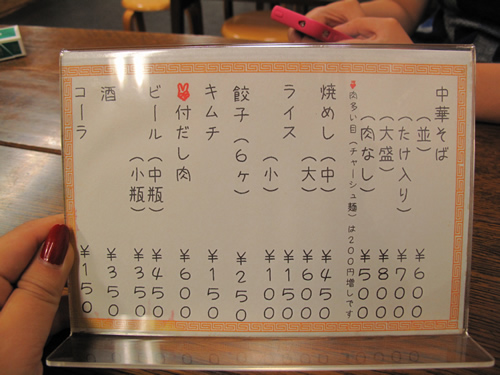 中華そば
(並) ¥600
(たけ入り) ¥700
(大盛) ¥800
(肉なし) ¥500
肉多い目(チャーシュ麺)は200円増しです
焼めし (中) ¥450
(大) ¥600
ライス ¥150
(小) ¥100
餃子 (6ヶ) ¥250
キムチ ¥150
付だし肉 ¥600
ビール (中瓶) ¥450
(小瓶) ¥350
酒 ¥350
コーラ ¥150